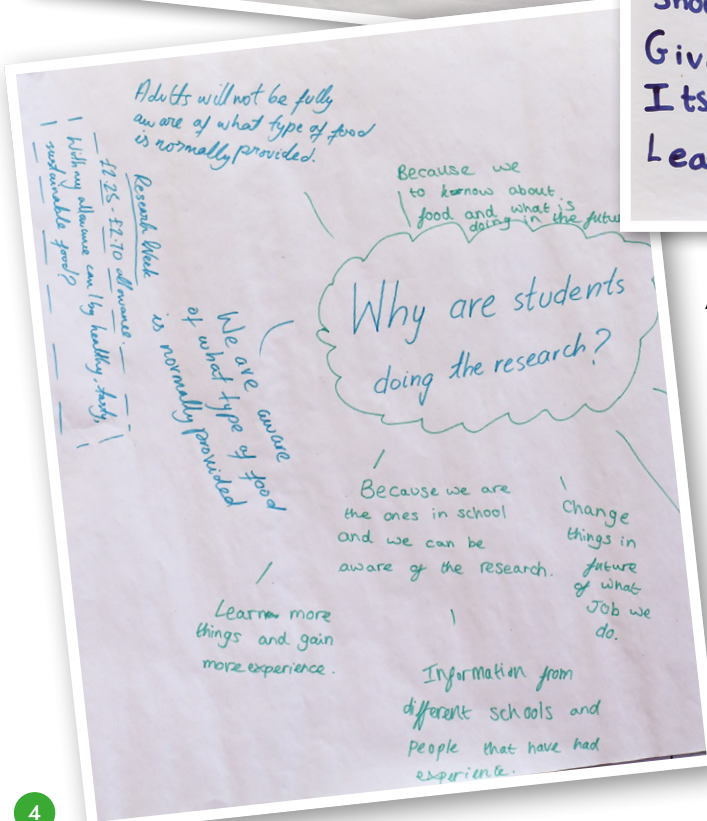 Adults will not be fully
aware of what type of food
is normally provided.
Because we
to know about
food and what is
doing in the futu
Why are students
doing the research?
Research Week
£2.25 - £2.70 allowance.
With my allowance can I by healthy, tasty,
sustainable food?
We are aware
of what type of food
is normally provided
Because we are
the ones in school
and we can be
aware of the research.
Change
things in
future
of what
Job we
do.
Learn more
things and gain
more experience.
Information from
different schools and
People that have had
experience.
Giv
Its
Lea
4